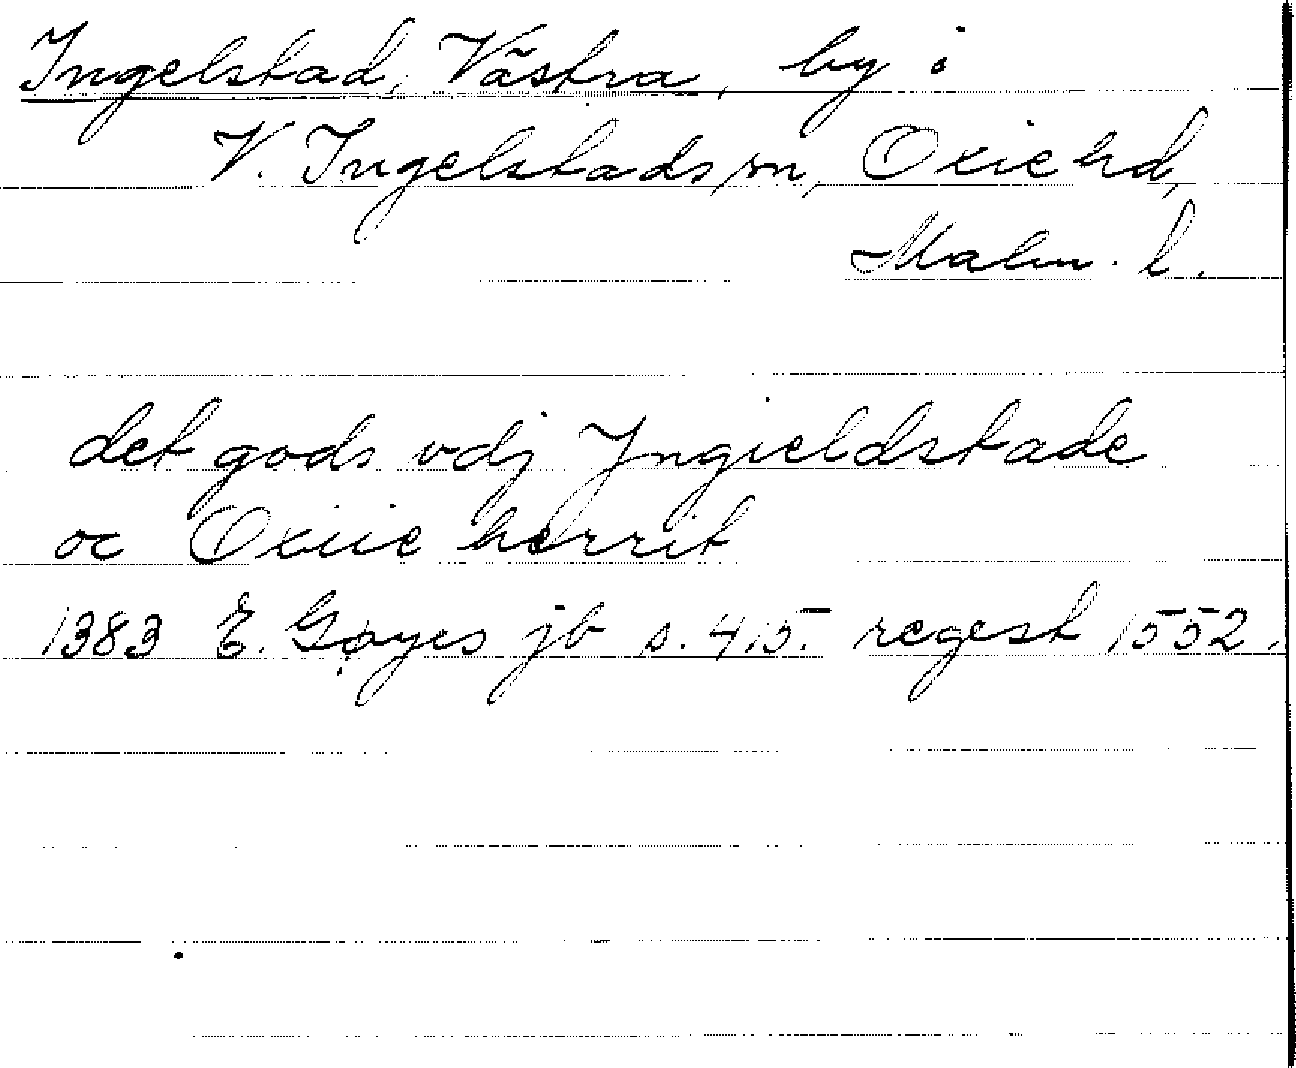 Ingelstad, Västra, by i
V. Ingelstads sn, Oxie hd,
Malm. l.
det gods vdj Jngieldstade
oc Oxiie herrit
1383 E. Gøyes jb s. 415. regest 1552.